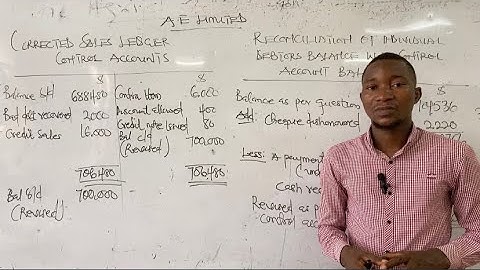 A.E LIMITED
CORRECTED SALES LEDGER
CONTROL ACCOUNTS
$ $
Balance b/d 688480 Contra item 6,000
Bad debt recovered 2000 Discount allowed 400
Credit Sales 16,000 Credit note issued 80
Bal c/d 700,000
(Revised)
706480 706,480
Bal b/d 700,000
(Revised)
RECONCILIATION OF INDIVIDUAL
DEBTORS BALANCE
ACCOUNT
$
Balance as per question
Add: Cheque dishonoured 2,220
Less: A payment
Cash
Revised as
control